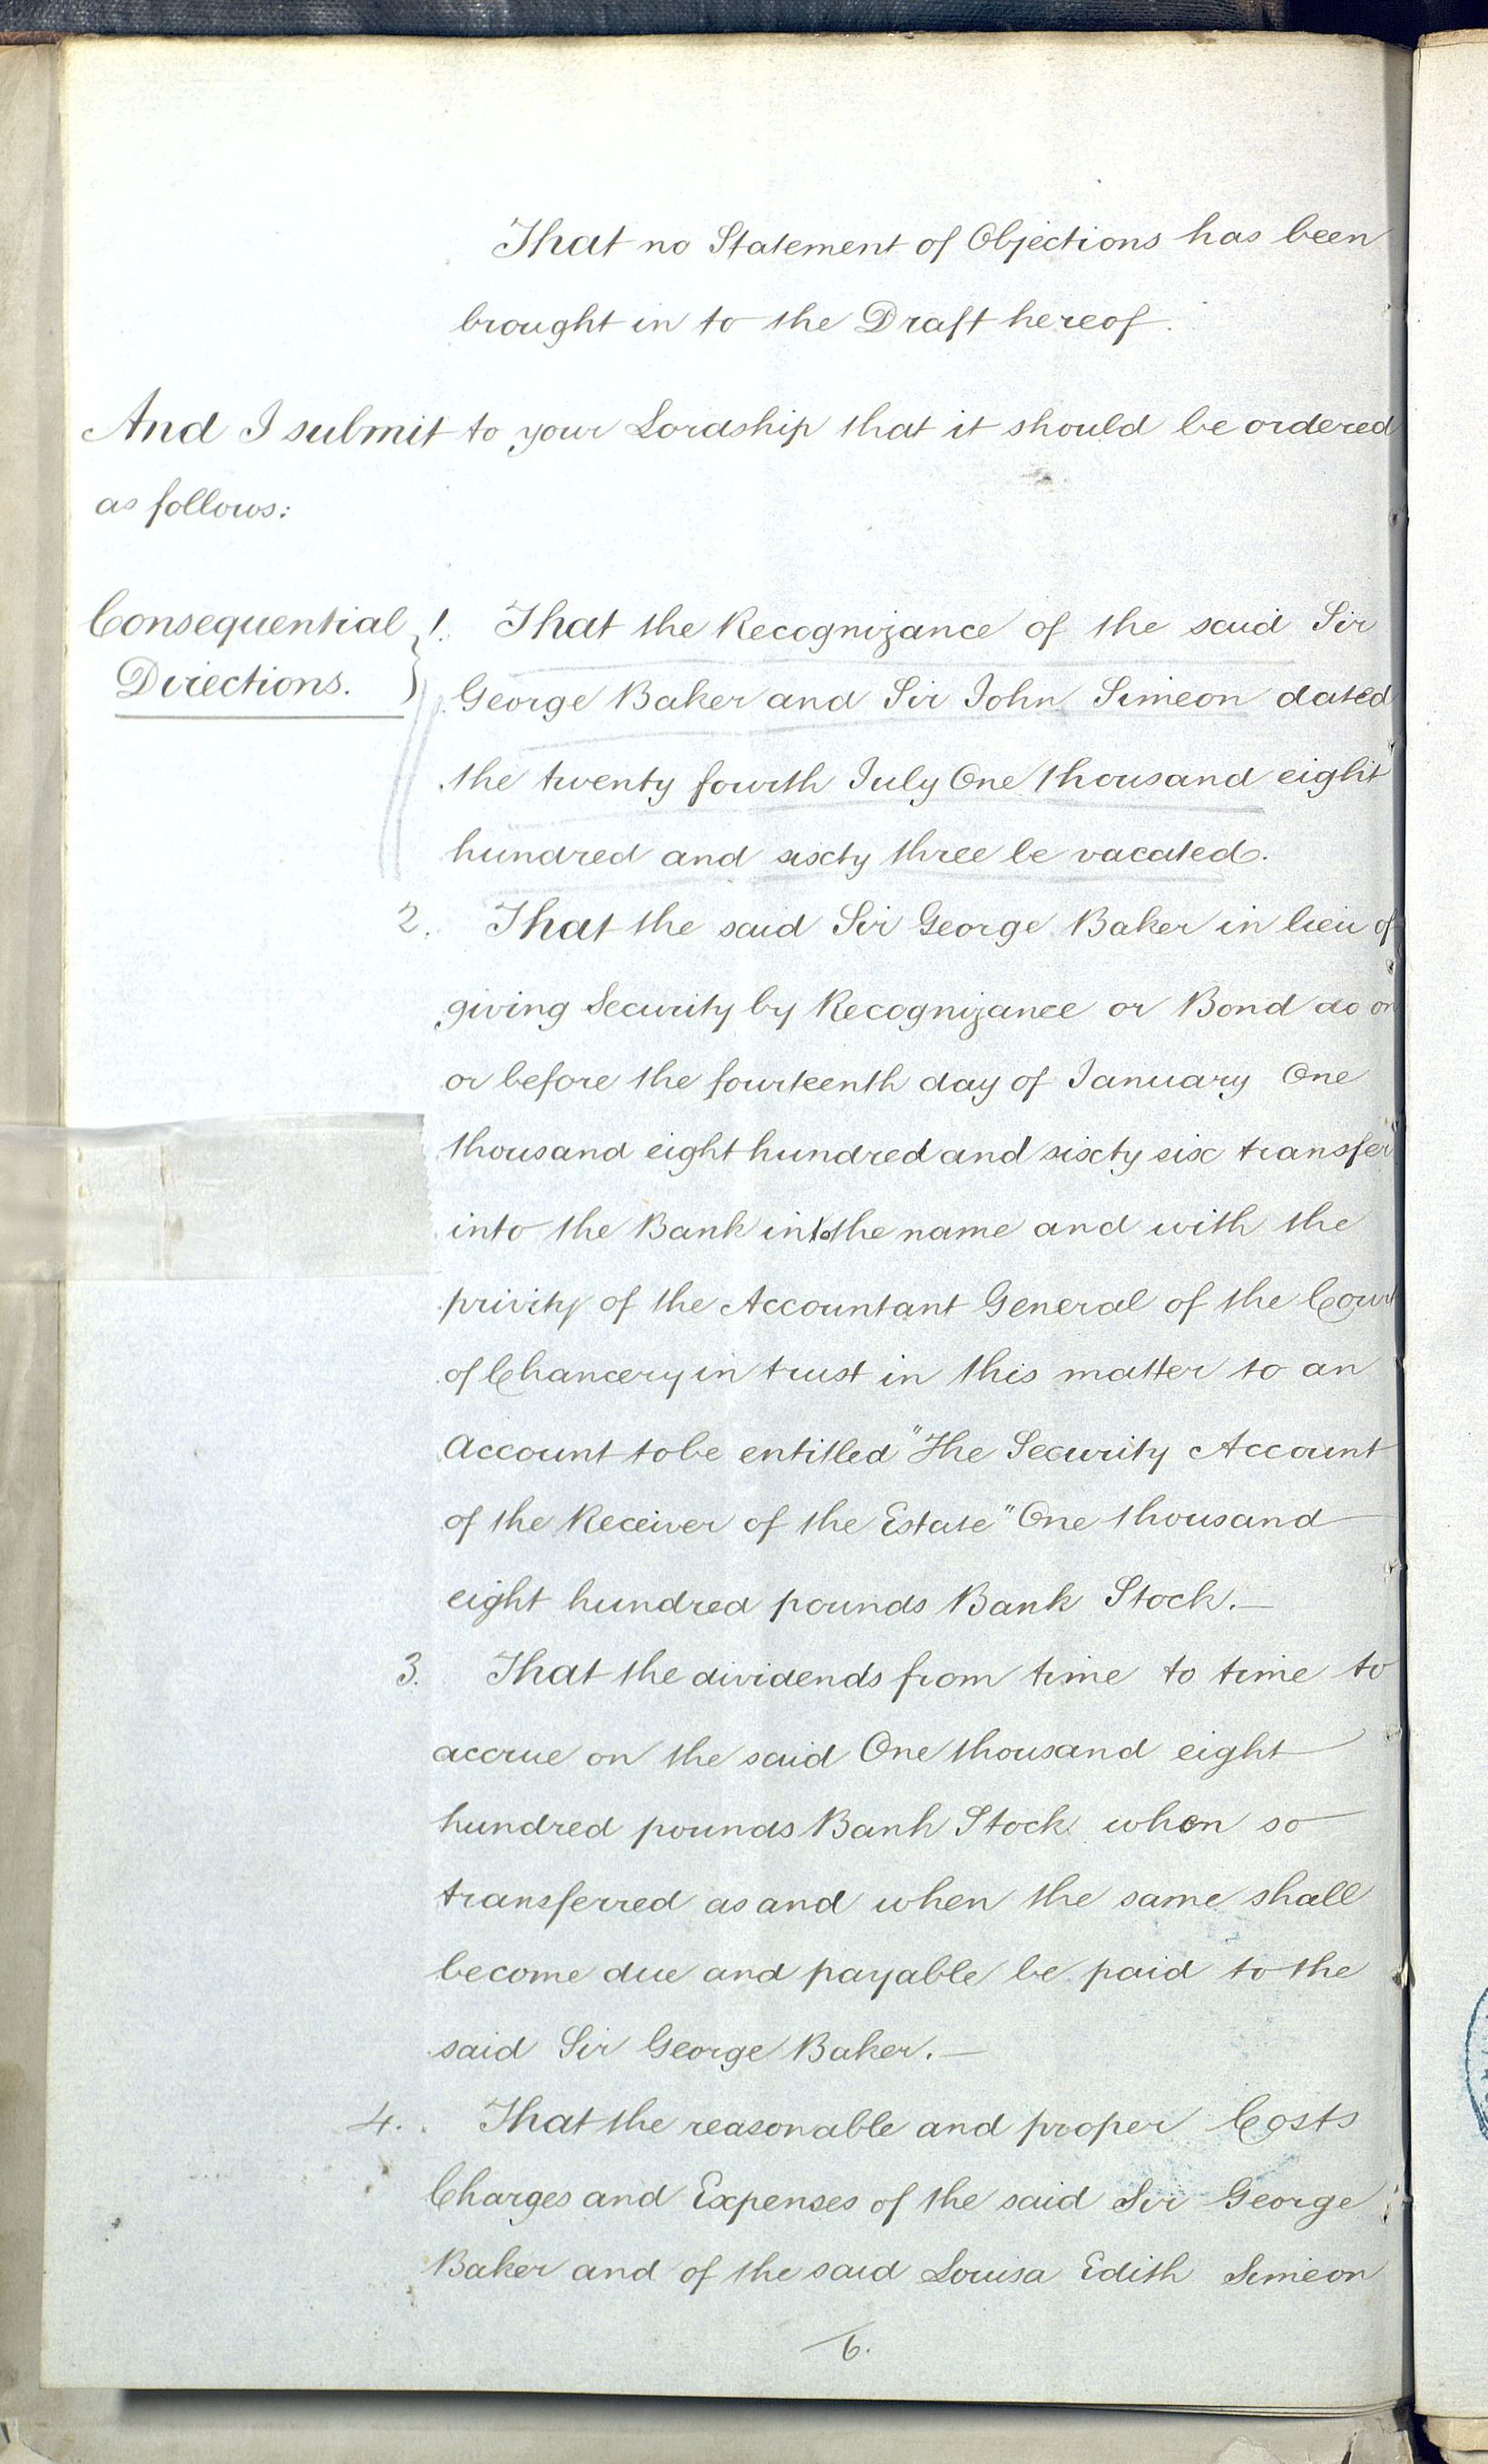 That no Statement of Objections has been
brought in to the Draft hereof.
And I submit to your Lordship that it should be ordered
as follows:
Consequential
Directions.
1. That the Recognizance of the said Sir
George Baker and Sir John Simeon dated
the twenty fourth July One thousand eight
hundred and sixty three be vacated.
2. That the said Sir George Baker in lieu of
giving Security by Recognizance or Bond do on
or before the fourteenth day of January One
thousand eight hundred and sixty six transfer
into the Bank into the name and with the
privity of the Accountant General of the Court
of Chancery in trust in this matter to an
Account to be entitled "The Security Account
of the Receiver of the Estate" One thousand
eight hundred pounds Bank Stock.—
3. That the dividends from time to time to
accrue on the said One thousand eight
hundred pounds Bank Stock when so
transferred as and when the same shall
become due and payable be paid to the
said Sir George Baker.—
4. That the reasonable and proper Costs
Charges and Expenses of the said Sir George
Baker and of the said Louisa Edith Simeon
6.